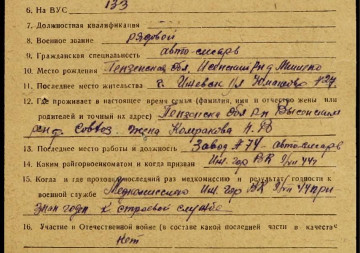 6. На ВУС 133
7. Должностная квалификация
8. Военное звание рядовой
9. Гражданская специальность авто-слесарь
10. Место рождения Пензенская обл.
11. Последнее место жительства г. Ижевск
12. Где проживает в настоящее время семья (фамилия, имя и отчество жены или
родителей и точный их адрес) Пензенская обл р-н
Совхоз. Жена
13. Последнее место работы и должность Завод №74 - авто-слесарь
14. Каким райгорвоенкоматом и когда призван Иж. гор ВК 44г
15. Когда и где проходил последний раз медкомиссию и результат годности к
военной службе Иж. гор ВК 44г при
знан годен к строевой службе
16. Участие в Отечественной войне (в составе какой последней части и в качестве
Нет